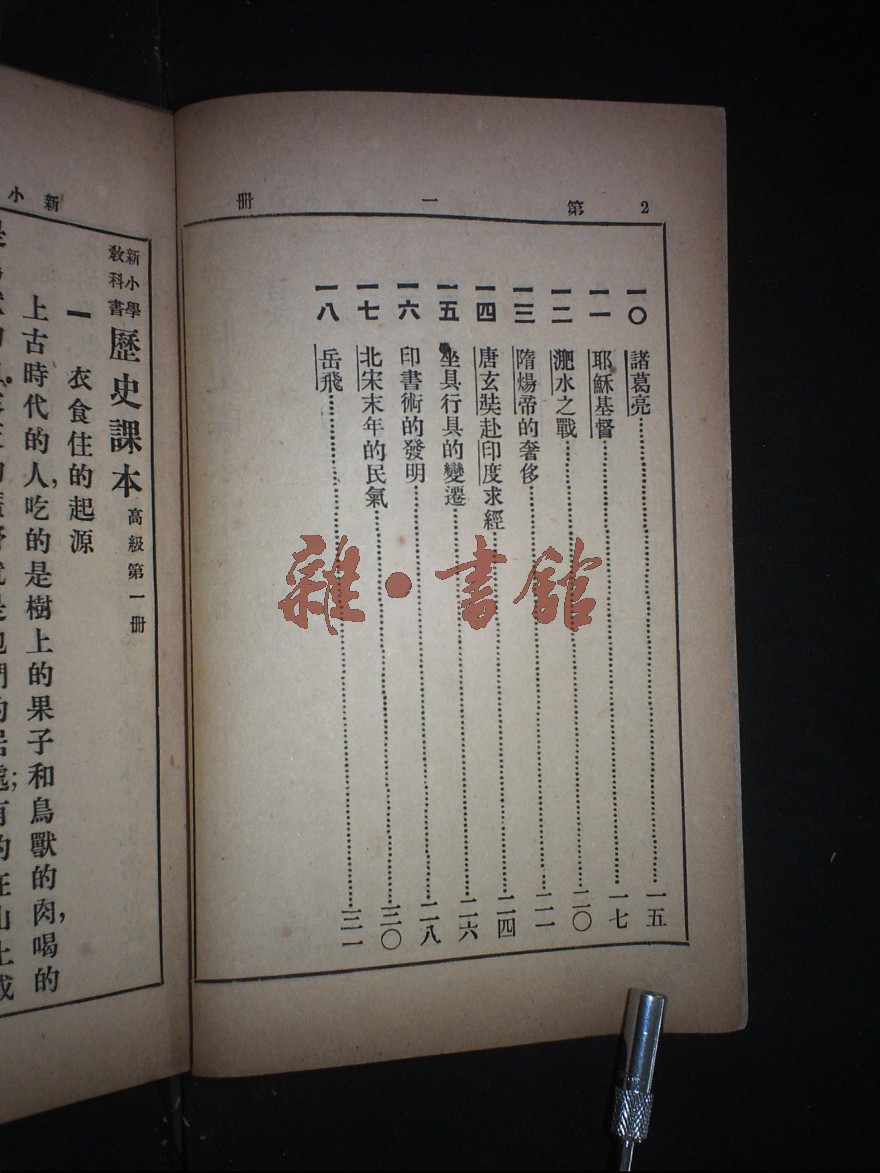 2 第一册
一〇 諸葛亮 一五
一一 耶穌基督 一七
一二 淝水之戰 二〇
一三 隋煬帝的奢侈 二一
一四 唐玄奘赴印度求經 二四
一五 坐具行具的變遷 二六
一六 印書術的發明 二八
一七 北宋末年的民氣 三〇
一八 岳飛 三一
雜·書館
新小
新小學教科書 歷史課本 高級第一册
一 衣食住的起源
上古時代的人,吃的是樹上的果子和鳥獸的肉,喝的